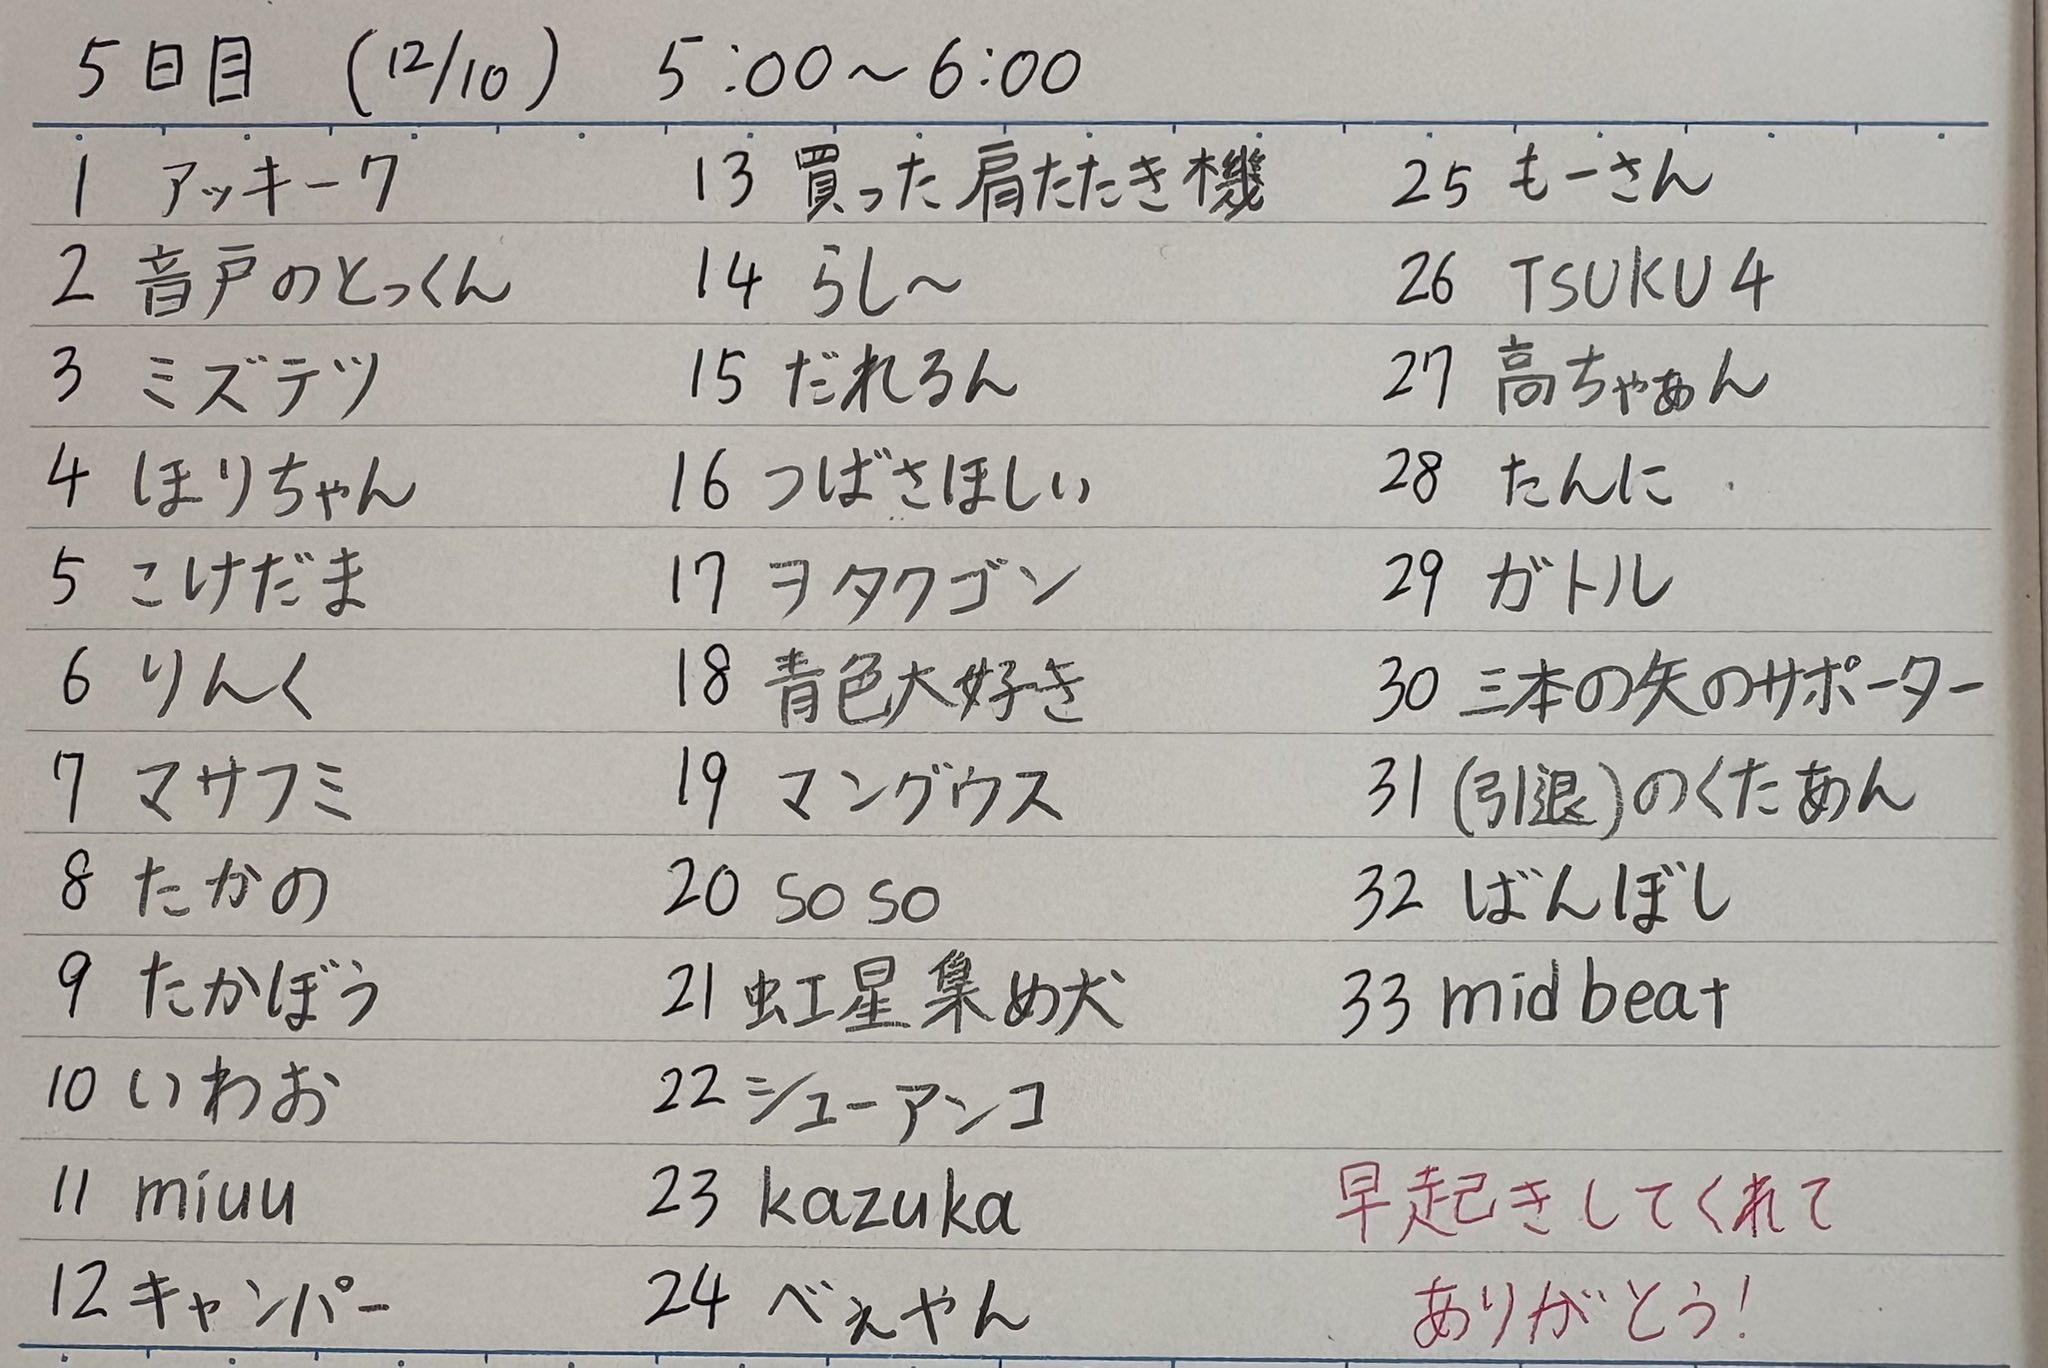 5日目 (12/10) 5:00～6:00
1 アッキー7
2 音戸のとっくん
3 ミズテツ
4 ほりちゃん
5 こけだま
6 りんく
7 マサフミ
8 たかの
9 たかぼう
10 いわお
11 miuu
12 キャンパー
13 買った肩たたき機
14 らし～
15 だれるん
16 つばさほしい
17 ヲタクゴン
18 青色大好き
19 マングウス
20 soso
21 虹星集め犬
22 シューアンコ
23 kazuka
24 べぇやん
25 もーさん
26 TSUKU4
27 高ちゃぁん
28 たんに
29 ガトル
30 三本の矢のサポーター
31 (引退)のくたあん
32 ばんぼし
33 midbeat
早起きしてくれて
ありがとう!